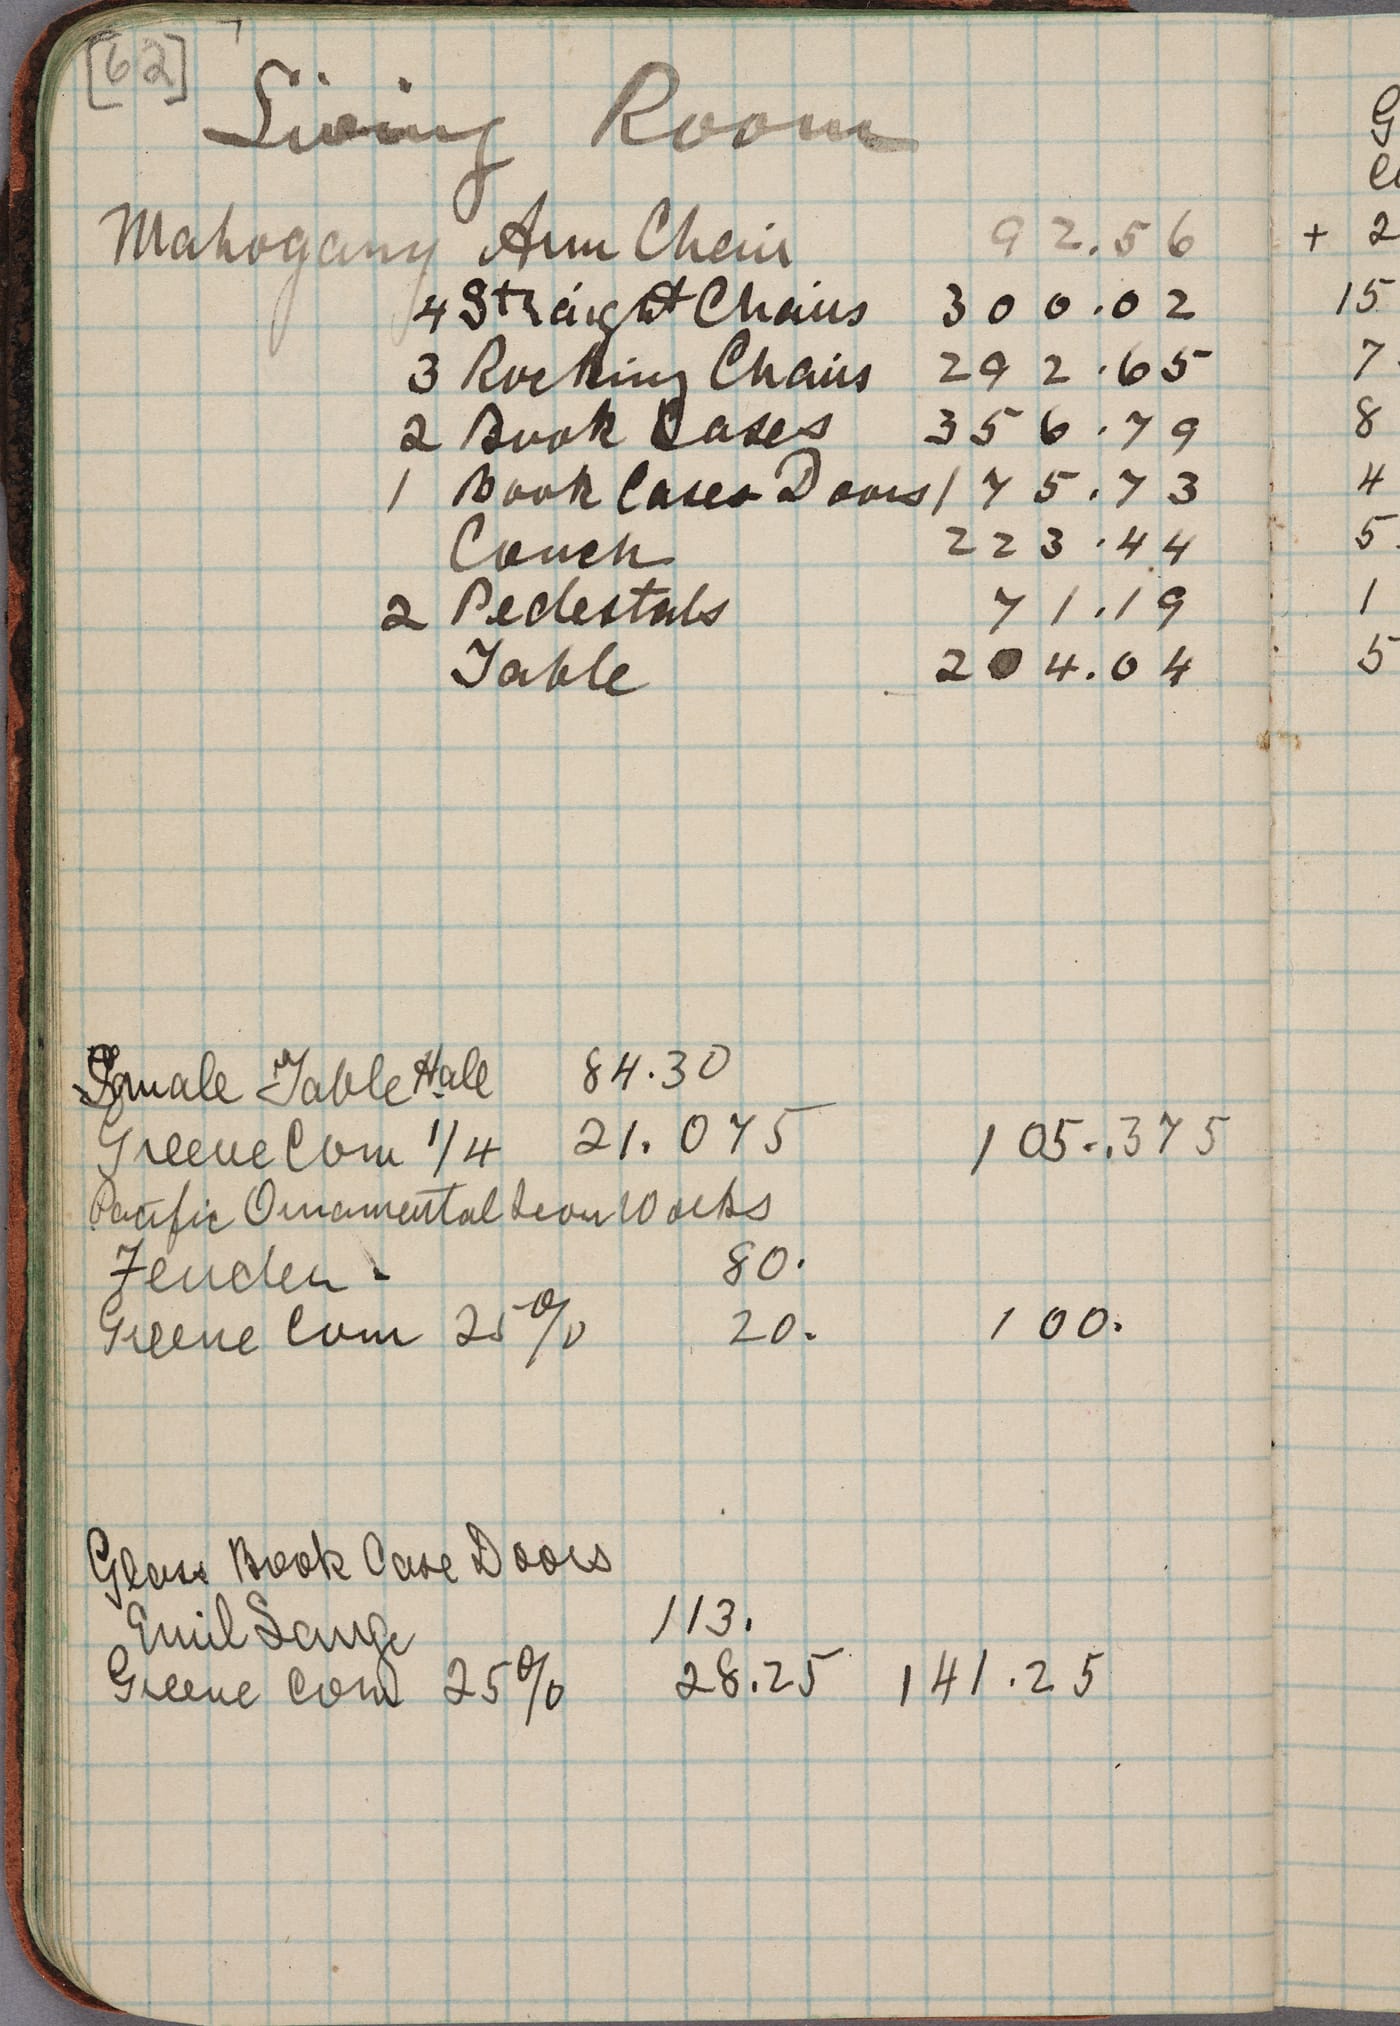 [62]
Living Room
Mahogany Arm Chair 92.56
4 Straight Chairs 300.02
3 Rocking Chairs 292.65
2 Book Cases 356.79
1 Book Cases Doors 175.73
Couch 223.44
2 Pedestals 71.19
Table 204.04
Table Hall 84.30
Greene Com 1/4 21.075 105.375
Pacific Ornamental Iron Works
Fender - 80.
Greene Com 25% 20. 100.
Glass Book Case Doors
Emil Lange 113.
Greene Com 25% 28.25 141.25
+ 2
15
7
8
4
5
1
5